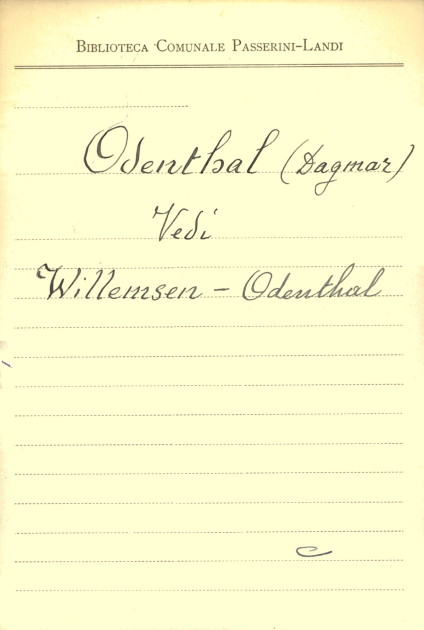 Biblioteca Comunale Passerini-Landi
Odenthal (Dagmar)
Vedi
Willemsen - Odenthal